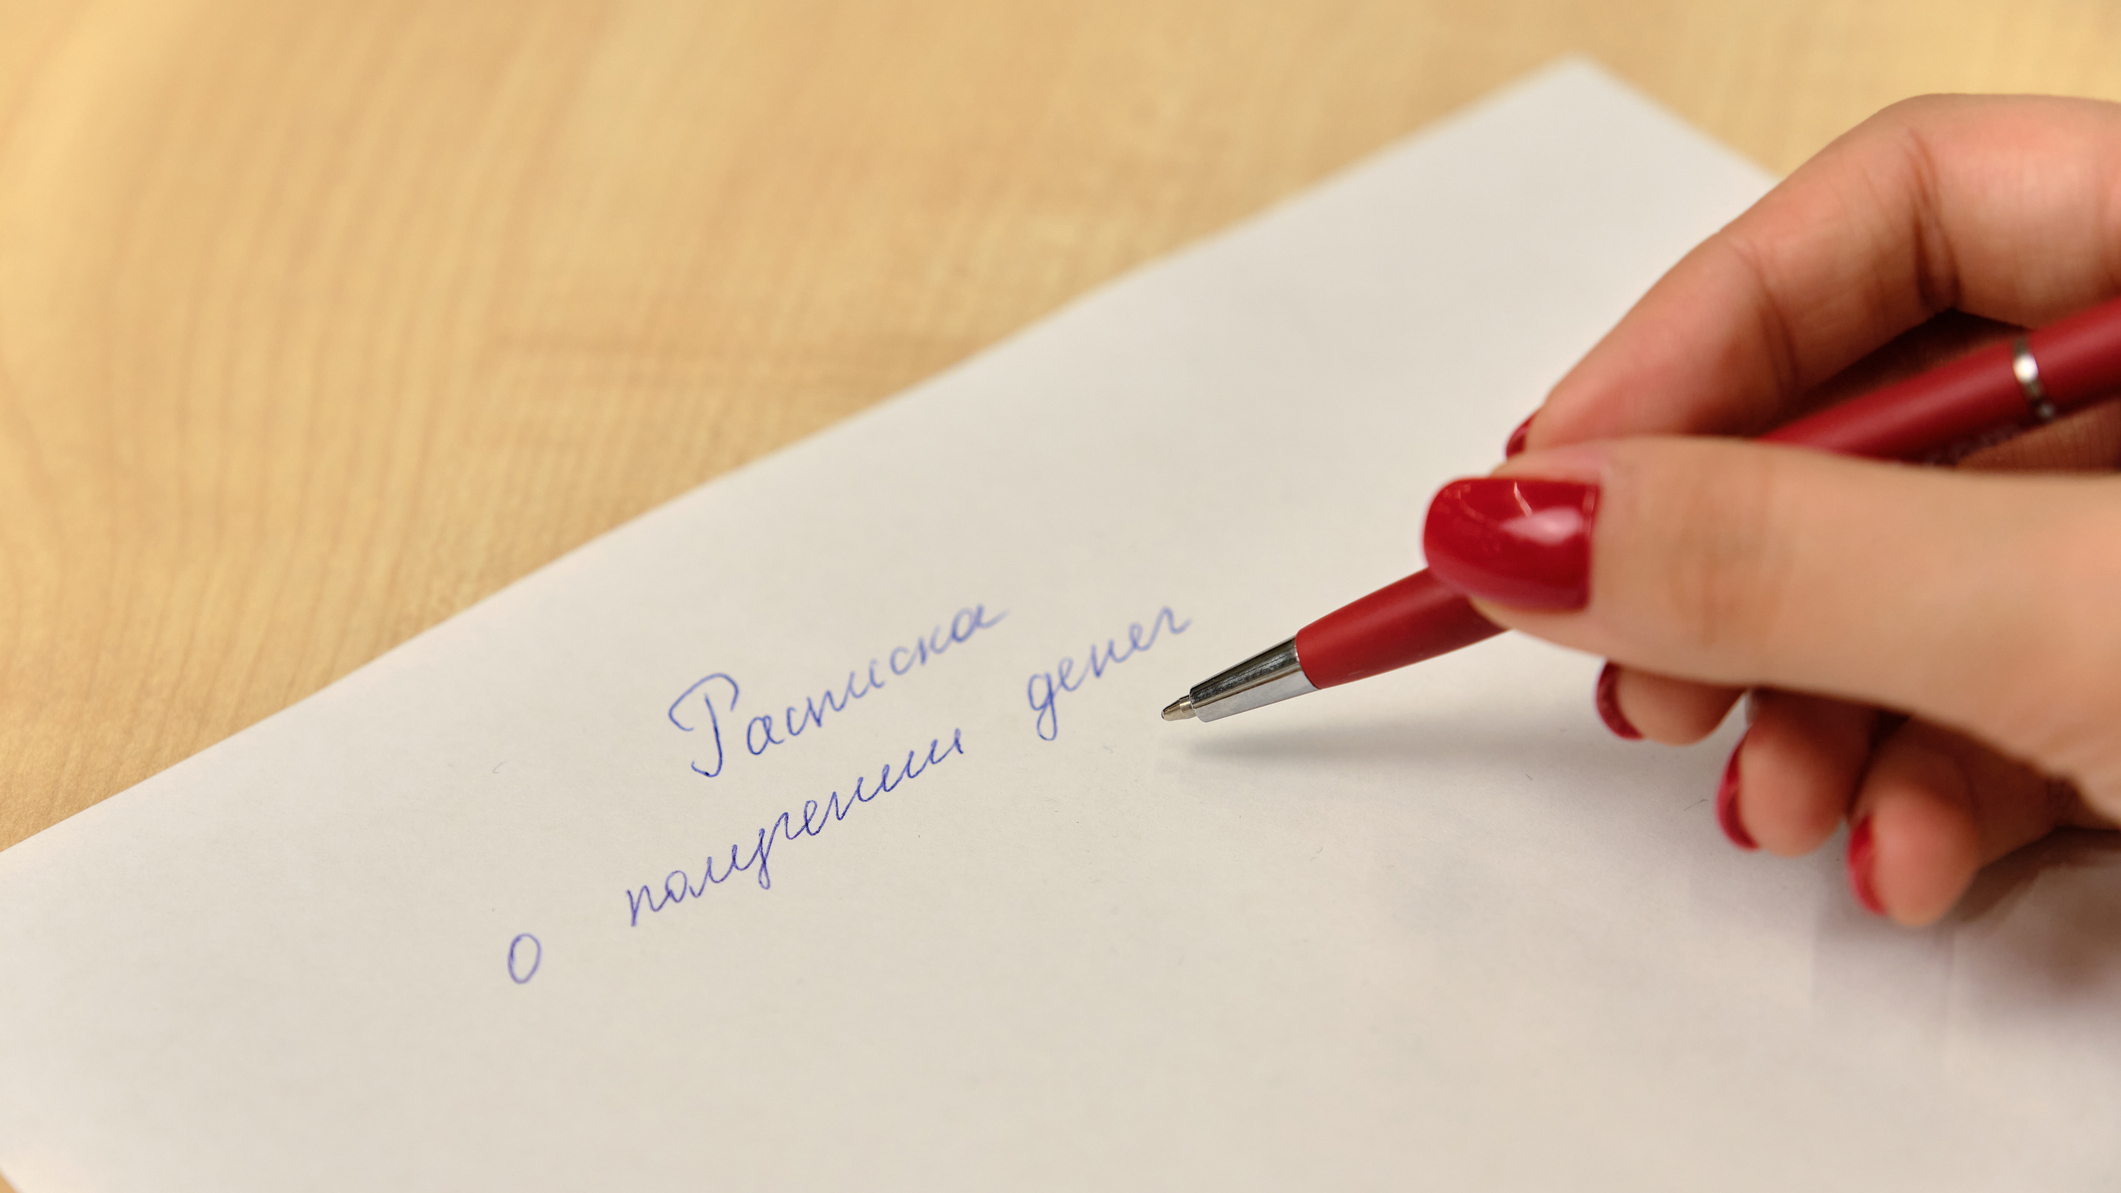 Расписка
о получении денег